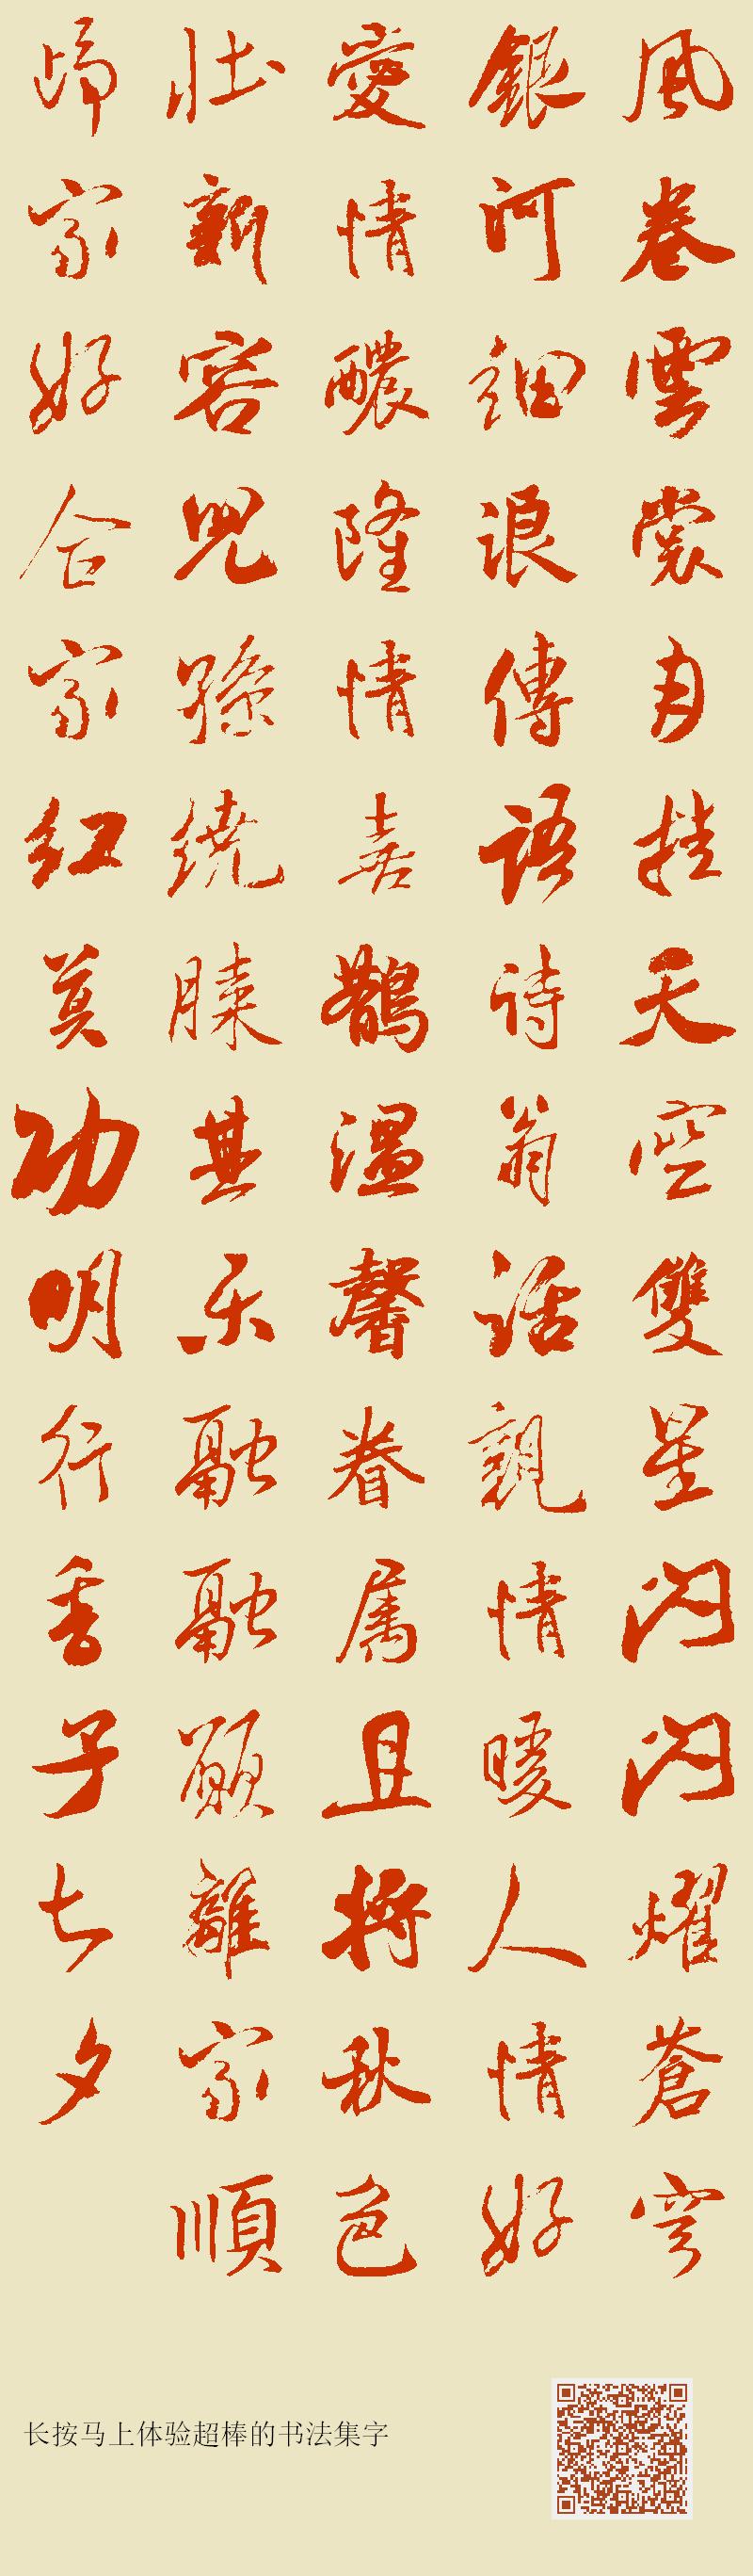 風卷雲裳月挂天空雙星闪闪耀蒼穹
銀河細浪傳語诗翁話親情暖人情好
愛情醲隆情喜鵲温馨眷属且將秋色
壯新容兒孫繞膝其乐融融願離家順
歸家好合家红莫功明行香子七夕
长按马上体验超棒的书法集字